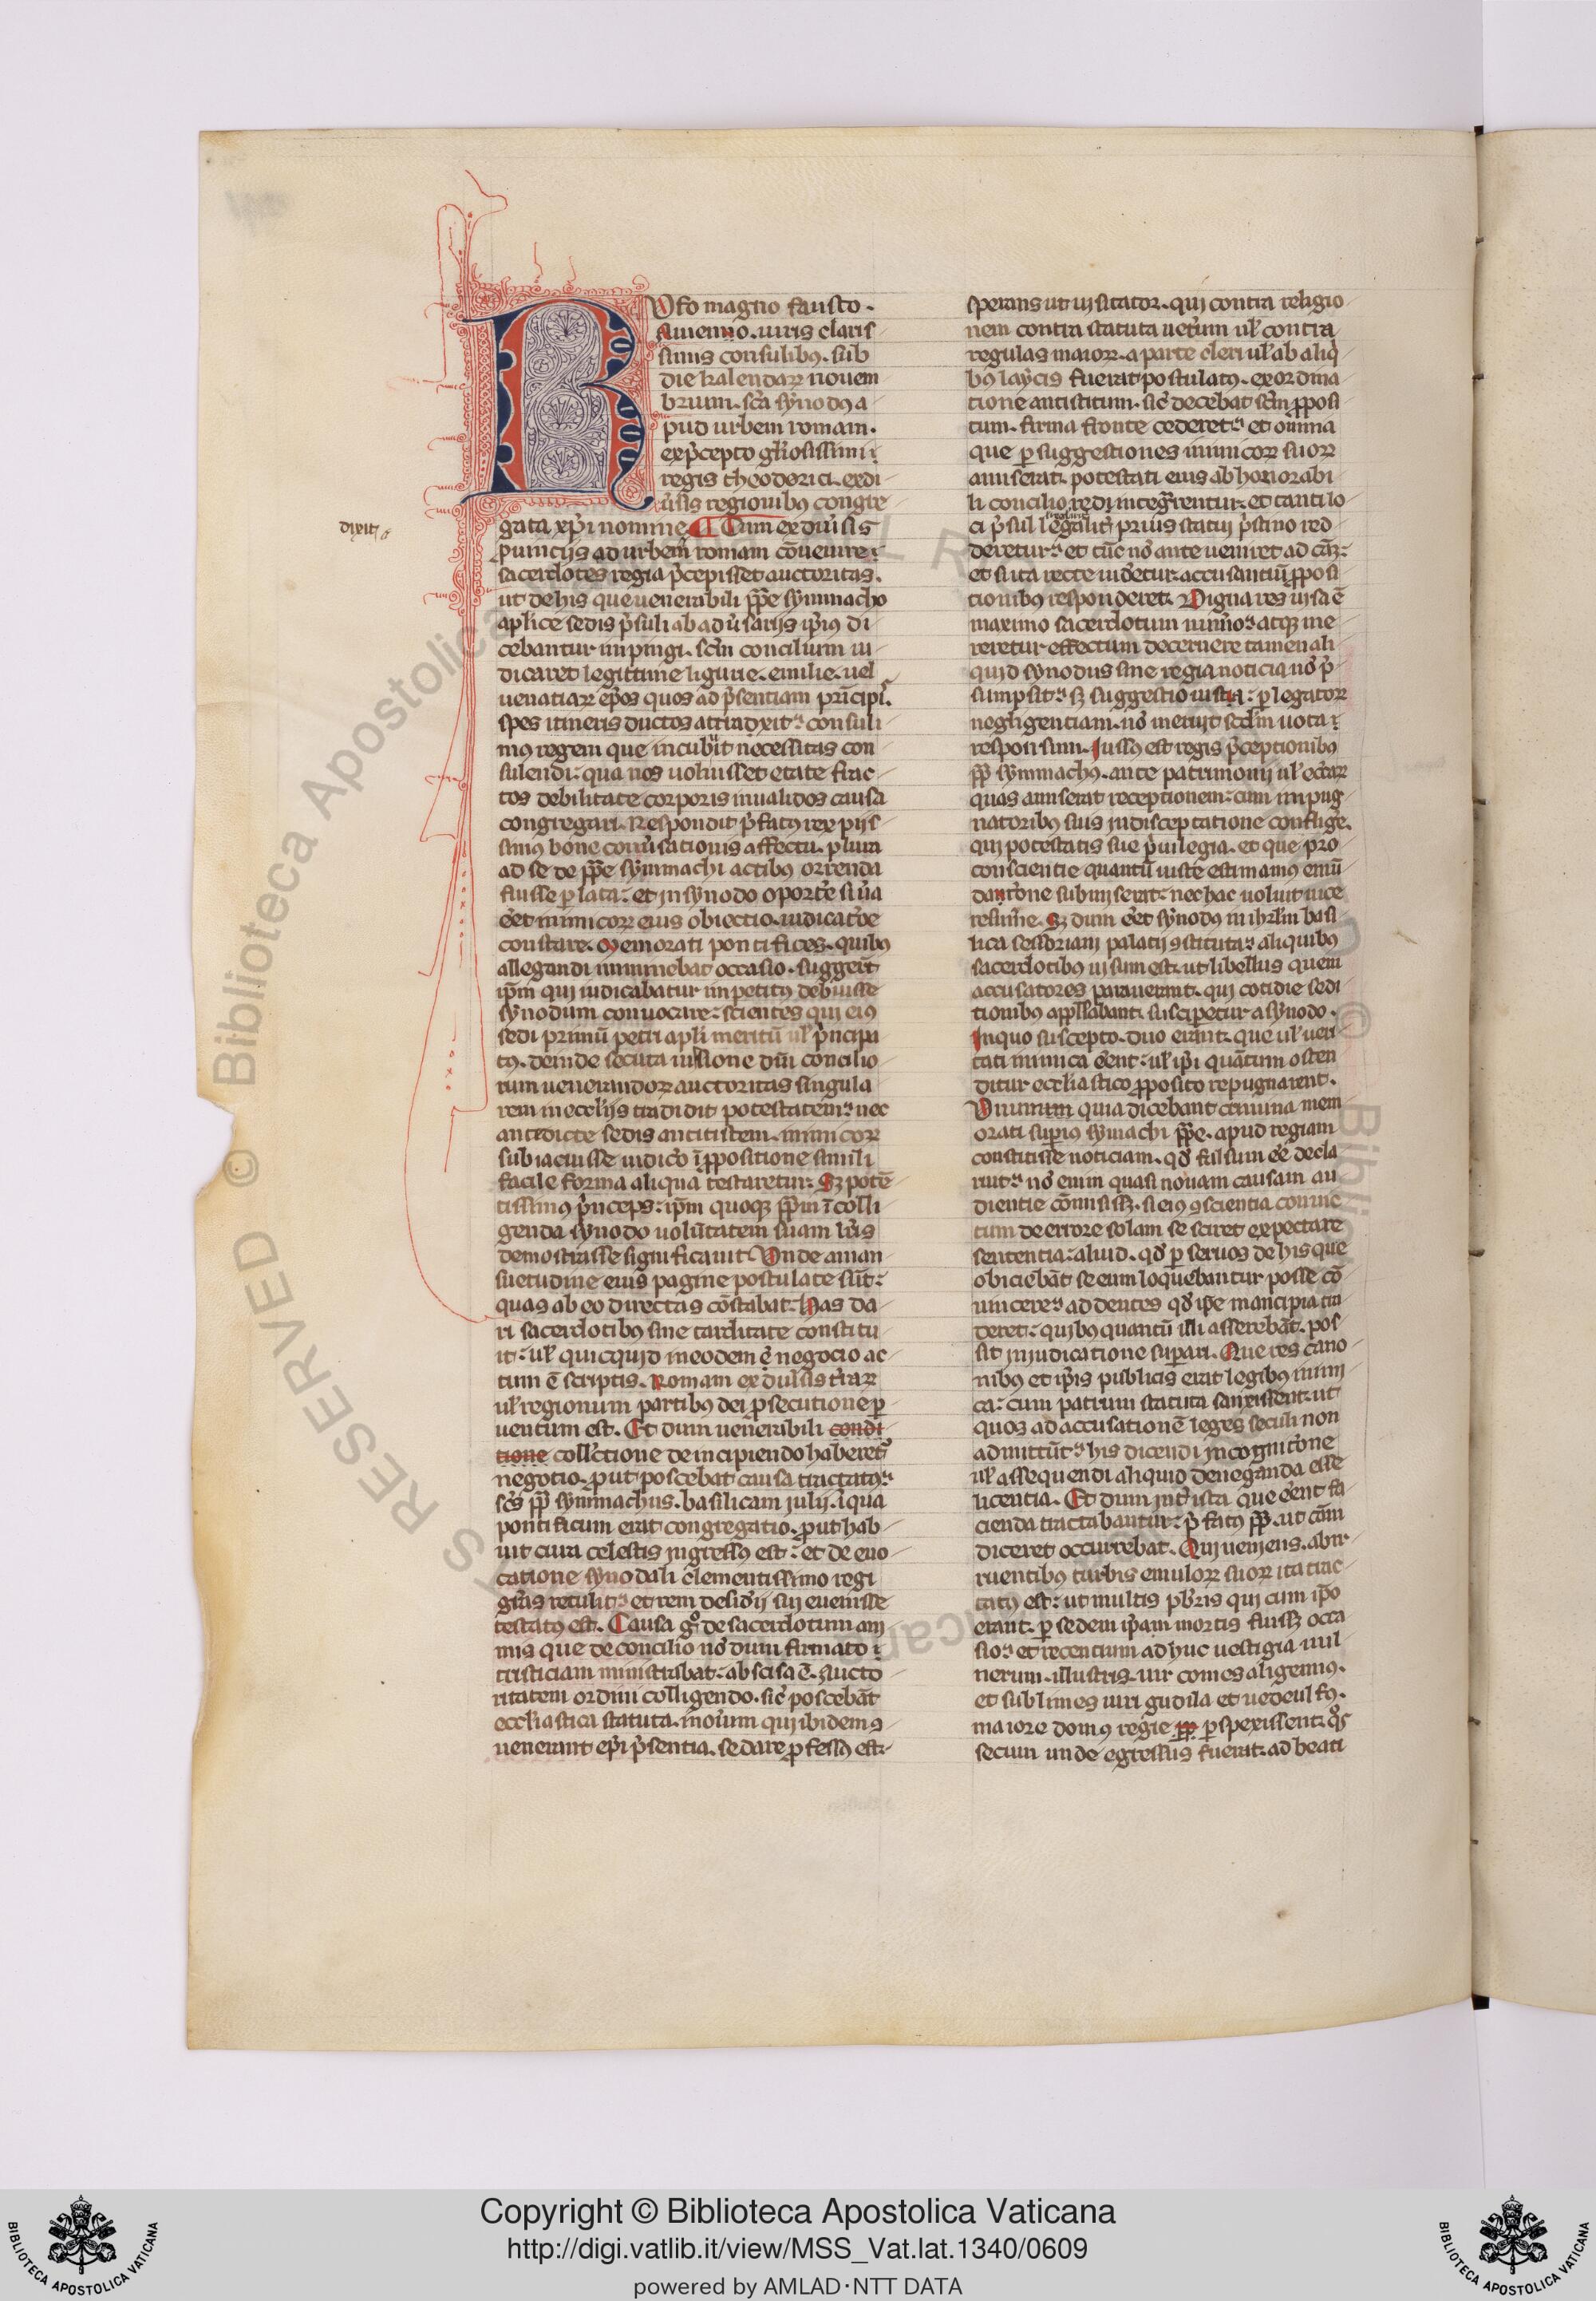 RVfo magno fausto.
Auienno. uiris claris
simis consulibꝫ. sub
die kalendaꝝ nouem
brium. sc̄a synodꝯ a
pud urbem romam.
ex p̄cepto gl̄iosissimi
regis theodorici. ex di
ūsis regionibꝯ congre
gata xp̄i nomine ¶ Cum ex diu̾sis
puincijs ad urbem romam cōuenire
sacerdotes regia p̄cepisset auctoritas.
ut de his que uenerabili pp̄e symmacho
aplice sedis p̄suli ab adu̾sarijs ip̄ius di
cebantur impingi. sc̄m concilium iu
dicaret legittime ligurie. emilie. uel
uenatiaꝝ ep̄os quos ad p̄sentiam prīcipis
spes itineris ductos attraxit consuli
mꝯ regem que incubuit necessitas con
sulendi qua nos uoluisset etate frac
tos debilitate corporis inualidos causa
congregari. Respondit p̄fatꝯ rex pijs
simꝯ bone conu̾sationis affectu. plura
ad se de pp̄e symmachi actibꝯ orrenda
fuisse perlata. et in synodo oporte̾ si u̾a
eēt inimicoꝝ eius obiectio. iudicatōe
constare. Memorati pontifices. quibꝯ
allegandi imminebat occasio. sugger̄t
ip̄m qui iudicabatur impetitꝯ debuisse
synodum conuocare scientes qui eiꝯ
sedi primū petri apl̄i meritū ul̾ p̄ncipa
tꝯ. deinde secuta iussione dn̄i concilio
rum uenerandoꝝ auctoritas singula
rem in eccl̄ijs tradidit potestatem nec
antedicte sedis antitistem. inimicoꝝ
subiacuisse iudicio ī ꝓpositione simili
facile forma aliqua testaretur. Sꝫ potē
tissimꝯ p̄nceps ip̄m quoqꝫ pp̄m ī colli
genda synodo uolūtatem suam lr̄is
demostrasse significauit. Vnde a man
suetudine eius pagine postulate sūt
quas ab eo directas cōstabat. Has da
ri sacerdotibꝯ sine tarditate constitu
it ul̾ quicquid in eodem ē negocio ac
tum ē scriptis. Romam ex diu̾sis t̾raꝝ
ul̾ regionum partibꝯ dei ꝓsecutione p
uentum est. Et dum uenerabili condi
tione collectione de incipiendo haberet̾
negotio. put poscebat causa tractatꝯ
sc̄s pp̄ symmachus. basilicam iulij. ī qua
pontificum erat congregatio. put hab
uit cura celestis ingressꝯ est et de euo
catione synodali clementissimo regi
gr̄as retulit et rem desid̾ij sui euenisse
testatꝯ est. Causa g̊ de sacerdotum ani
mis que de concilio nō dum firmato
tristiciam ministrabat abscisa ē. Aucto
ritatem ordini colligendo. sic̄ poscebāt
eccl̄iastica statuta. moūm qui ibidem ꝯ
uenerant ep̄i p̄sentia. se dare ꝓfessꝯ est
dixit
sperans ut uisitator. qui contra religio
nem contra statuta uet̾um ul̾ contra
regulas maioꝝ. a parte cleri ul̾ ab aliq̾
bꝯ laycis fuerat postulatꝯ. ex ordina
tione antistitum. sic̄ decebat sc̄m ꝓposi
tum. firma fronte cederet̾ et omnia
que p suggestiones inimicoꝝ suoꝝ
amiserat. potestati eius ab honorabi
li concilio redintegrentur. et tanti lo
ci p̄sul legalit̾ prius statui p̄stino red
deretur et tūc nō ante ueniret ad cām
et si ita recte uidetur. accusantiū ꝓposi
tionibꝯ responderet. Digna res uisa ē
maximo sacerdotum num̾o atqꝫ me
reretur effectum decernere tamen ali
quid synodus sine regia noticia nō p̄
sumpsit sꝫ suggestio iusta p legatoꝝ
negligentiam. nō meruit sc̄dm uota
responsum. Iussꝯ est regis p̄ceptionibꝯ
pp̄ symmachꝯ. ante patrimonij ul̾ eccl̄aꝝ
quas amiserat receptionem cum impug
natoribꝯ suis in disceptatione confluge̾
qui potestatis sue p̄uilegia. et que pro
conscientie quantū iuste estimamus emū
datiōne submiserat nec hac uoluit uice
resume̾. Sꝫ dum eēt synodꝯ in ih̾rl̾m basi
lica sessoriani palatij ꝯstituta aliquibꝯ
sacerdotibꝯ uisum est. ut libellus quem
accusatores parauerant. qui cotidie sedi
tionibꝯ appellabant. susciperetur a synodo.
In quo suscepto. duo erant. que ul̾ ueri
tati inimica eēnt ul̾ ip̄i quātum osten
ditur eccl̄iastico ꝓposito repugnarent.
Vnum quia dicebant crimina mem
orati supius symachi pp̄e. apud regiam
constitisse noticiam. qd̾ falsum eē decla
rat nō enim quasi nouam causam au
dientie cōmisissꝫ. si eiꝯ ꝯscientia conuic
tum de errore solam se sciret expectare
sententia aliud. qd̾ p seruos de his que
obiciebāt se eum loquebantur posse cō
uincere addentes qd̾ ip̄e mancipia tra
deret quibꝯ quantū illi asserebāt. pos
sit in iudicatione suparari. Que res cano
nibꝯ et ip̄is publicis erat legibꝯ inimi
ca cum patrum statuta sanxissent. ut
quos ad accusationē leges seculi non
admittūt his dicendi in cognitōne
ul̾ assequendi aliquid deneganda esse
licentia. Et dum int̾ ista que eēnt fa
cienda tractabantur p̄fatꝯ pp̄. ut cām
diceret occurrebat. Qui ueniens. abir
ruentibꝯ turbis emuloꝝ suoꝝ ita trac
tatꝯ est ut multis pb̄ris qui cum ip̄o
erant. p sedem ip̄am mortis fuissꝫ occa
sio et recentium adhuc uestigia uul
nerum. illustris. uir comes aligernꝯ.
et sublimes uiri gudila et uedeulfꝯ.
maiore domꝯ regie pspexissent. q̊s
secum unde egressus fuerat. ad beati
Copyright © Biblioteca Apostolica Vaticana
http://digi.vatlib.it/view/MSS_Vat.lat.1340/0609
powered by AMLAD·NTT DATA
BIBLIOTECA APOSTOLICA VATICANA
BIBLIOTECA APOSTOLICA VATICANA